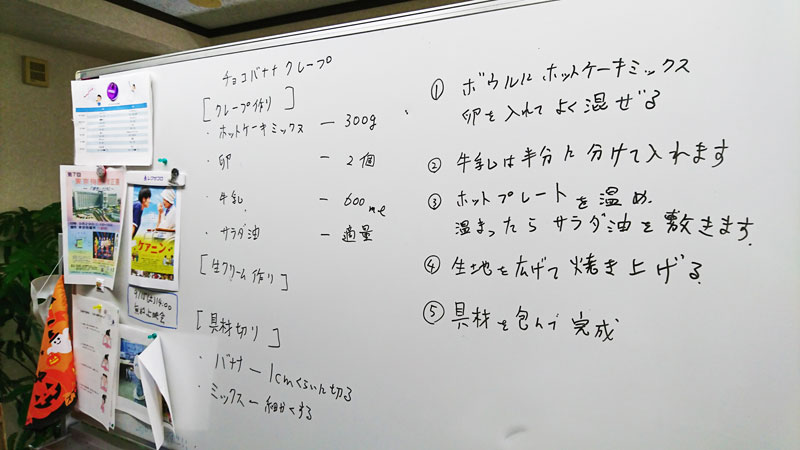 チョコバナナクレープ
[クレープ作り]
・ホットケーキミックス ー 300g
・卵 ー 2個
・牛乳 ー 600ml
・サラダ油 ー 適量
[生クリーム作り]
[具材切り]
・バナナ ー 1cmくらいに切る
・ミックス ー 細かくする
① ボウルにホットケーキミックス
卵を入れてよく混ぜる
② 牛乳は半分に分けて入れます
③ ホットプレートを温め、
温まったらサラダ油を敷きます。
④ 生地を広げて焼き上げる
⑤ 具材を包んで完成
第7回
ケアニン